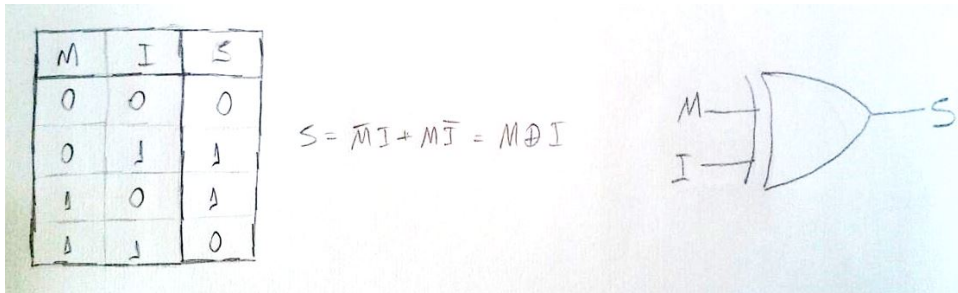 M I S
0 0 0
0 1 1
1 0 1
1 1 0
S = M̅I + MI̅ = M⊕I
M
I
S